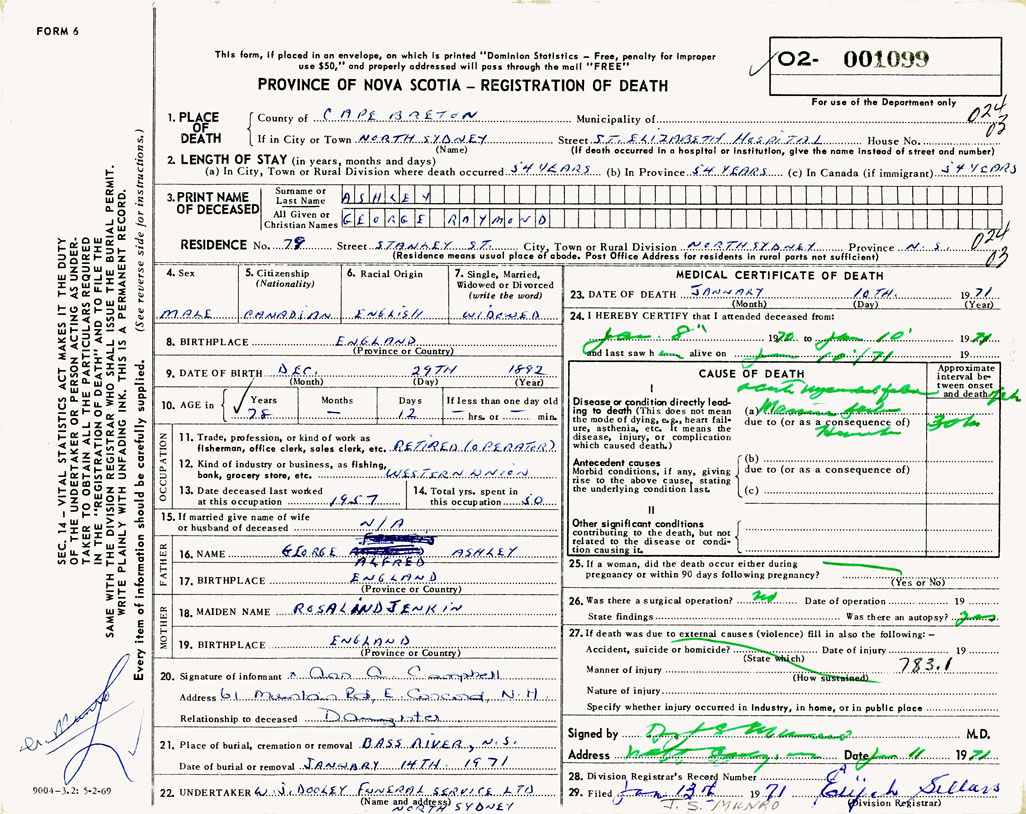 FORM 6
This form, if placed in an envelope, on which is printed "Dominion Statistics – Free, penalty for improper
use $50," and properly addressed will pass through the mail "FREE"
PROVINCE OF NOVA SCOTIA – REGISTRATION OF DEATH
O2- 001099
For use of the Department only
024
03
1. PLACE OF DEATH
County of CAPE BRETON Municipality of
If in City or Town NORTH SYDNEY Street ST. ELIZABETH HOSPITAL House No.
(Name) (If death occurred in a hospital or institution, give the name instead of street and number)
2. LENGTH OF STAY (in years, months and days)
(a) In City, Town or Rural Division where death occurred 54 YEARS (b) In Province 54 YEARS (c) In Canada (if immigrant) 54 YEARS
3. PRINT NAME OF DECEASED
Surname or Last Name ASHLEY
All Given or Christian Names GEORGE RAYMOND
RESIDENCE No. 78 Street STANLEY ST. City, Town or Rural Division NORTH SYDNEY Province N.S.
(Residence means usual place of abode. Post Office Address for residents in rural parts not sufficient)
024
03
4. Sex
MALE
5. Citizenship (Nationality)
CANADIAN
6. Racial Origin
ENGLISH
7. Single, Married, Widowed or Divorced (write the word)
WIDOWED
8. BIRTHPLACE ENGLAND
(Province or Country)
9. DATE OF BIRTH DEC. 29TH 1892
(Month) (Day) (Year)
10. AGE in Years Months Days If less than one day old
78 – 12 – hrs. or – min.
OCCUPATION
11. Trade, profession, or kind of work as
fisherman, office clerk, sales clerk, etc. RETIRED (OPERATOR)
12. Kind of industry or business, as fishing,
bank, grocery store, etc. WESTERN UNION
13. Date deceased last worked
at this occupation 1957
14. Total yrs. spent in
this occupation 50
15. If married give name of wife
or husband of deceased N/A
FATHER
16. NAME GEORGE ALFRED ASHLEY
17. BIRTHPLACE ENGLAND
(Province or Country)
MOTHER
18. MAIDEN NAME ROSALIND JENKIN
19. BIRTHPLACE ENGLAND
(Province or Country)
20. Signature of informant x Ann A. Campbell
Address 61 Mountain Rd, E. Concord, N.H.
Relationship to deceased Daughter
21. Place of burial, cremation or removal BASS RIVER, N.S.
Date of burial or removal JANUARY 14TH 1971
22. UNDERTAKER W. J. DOOLEY FUNERAL SERVICE LTD
(Name and address)
NORTH SYDNEY
MEDICAL CERTIFICATE OF DEATH
23. DATE OF DEATH JANUARY 10TH. 1971
(Month) (Day) (Year)
24. I HEREBY CERTIFY that I attended deceased from:
Jan. 8" 1970 to Jan 10' 1971
and last saw h im alive on Jan 10'/71 19
CAUSE OF DEATH
Approximate interval between onset and death
I
Disease or condition directly leading to death (This does not mean the mode of dying, e.g., heart failure, asthenia, etc. It means the disease, injury, or complication which caused death.)
(a)
due to (or as a consequence of)
Antecedent causes
Morbid conditions, if any, giving rise to the above cause, stating the underlying condition last.
(b)
due to (or as a consequence of)
(c)
II
Other significant conditions
contributing to the death, but not related to the disease or condition causing it.
25. If a woman, did the death occur either during
pregnancy or within 90 days following pregnancy?
(Yes or No)
26. Was there a surgical operation? no Date of operation 19
State findings Was there an autopsy?
27. If death was due to external causes (violence) fill in also the following: –
Accident, suicide or homicide? Date of injury 19
(State which)
783.1
Manner of injury
(How sustained)
Nature of injury
Specify whether injury occurred in industry, in home, or in public place
Signed by M.D.
Address Date Jan 11 1971
28. Division Registrar's Record Number
29. Filed Jan 13th 1971 Sillars
J. S. MUNRO (Division Registrar)
SEC. 14 – VITAL STATISTICS ACT MAKES IT THE DUTY
OF THE UNDERTAKER OR PERSON ACTING AS UNDERTAKER TO OBTAIN ALL THE PARTICULARS REQUIRED
IN THE "REGISTRATION OF DEATH" AND TO FILE THE
SAME WITH THE DIVISION REGISTRAR WHO SHALL ISSUE THE BURIAL PERMIT.
WRITE PLAINLY WITH UNFADING INK. THIS IS A PERMANENT RECORD.
Every item of information should be carefully supplied. (See reverse side for instructions.)
Dr. Munro
9004-3.2: 5-2-69